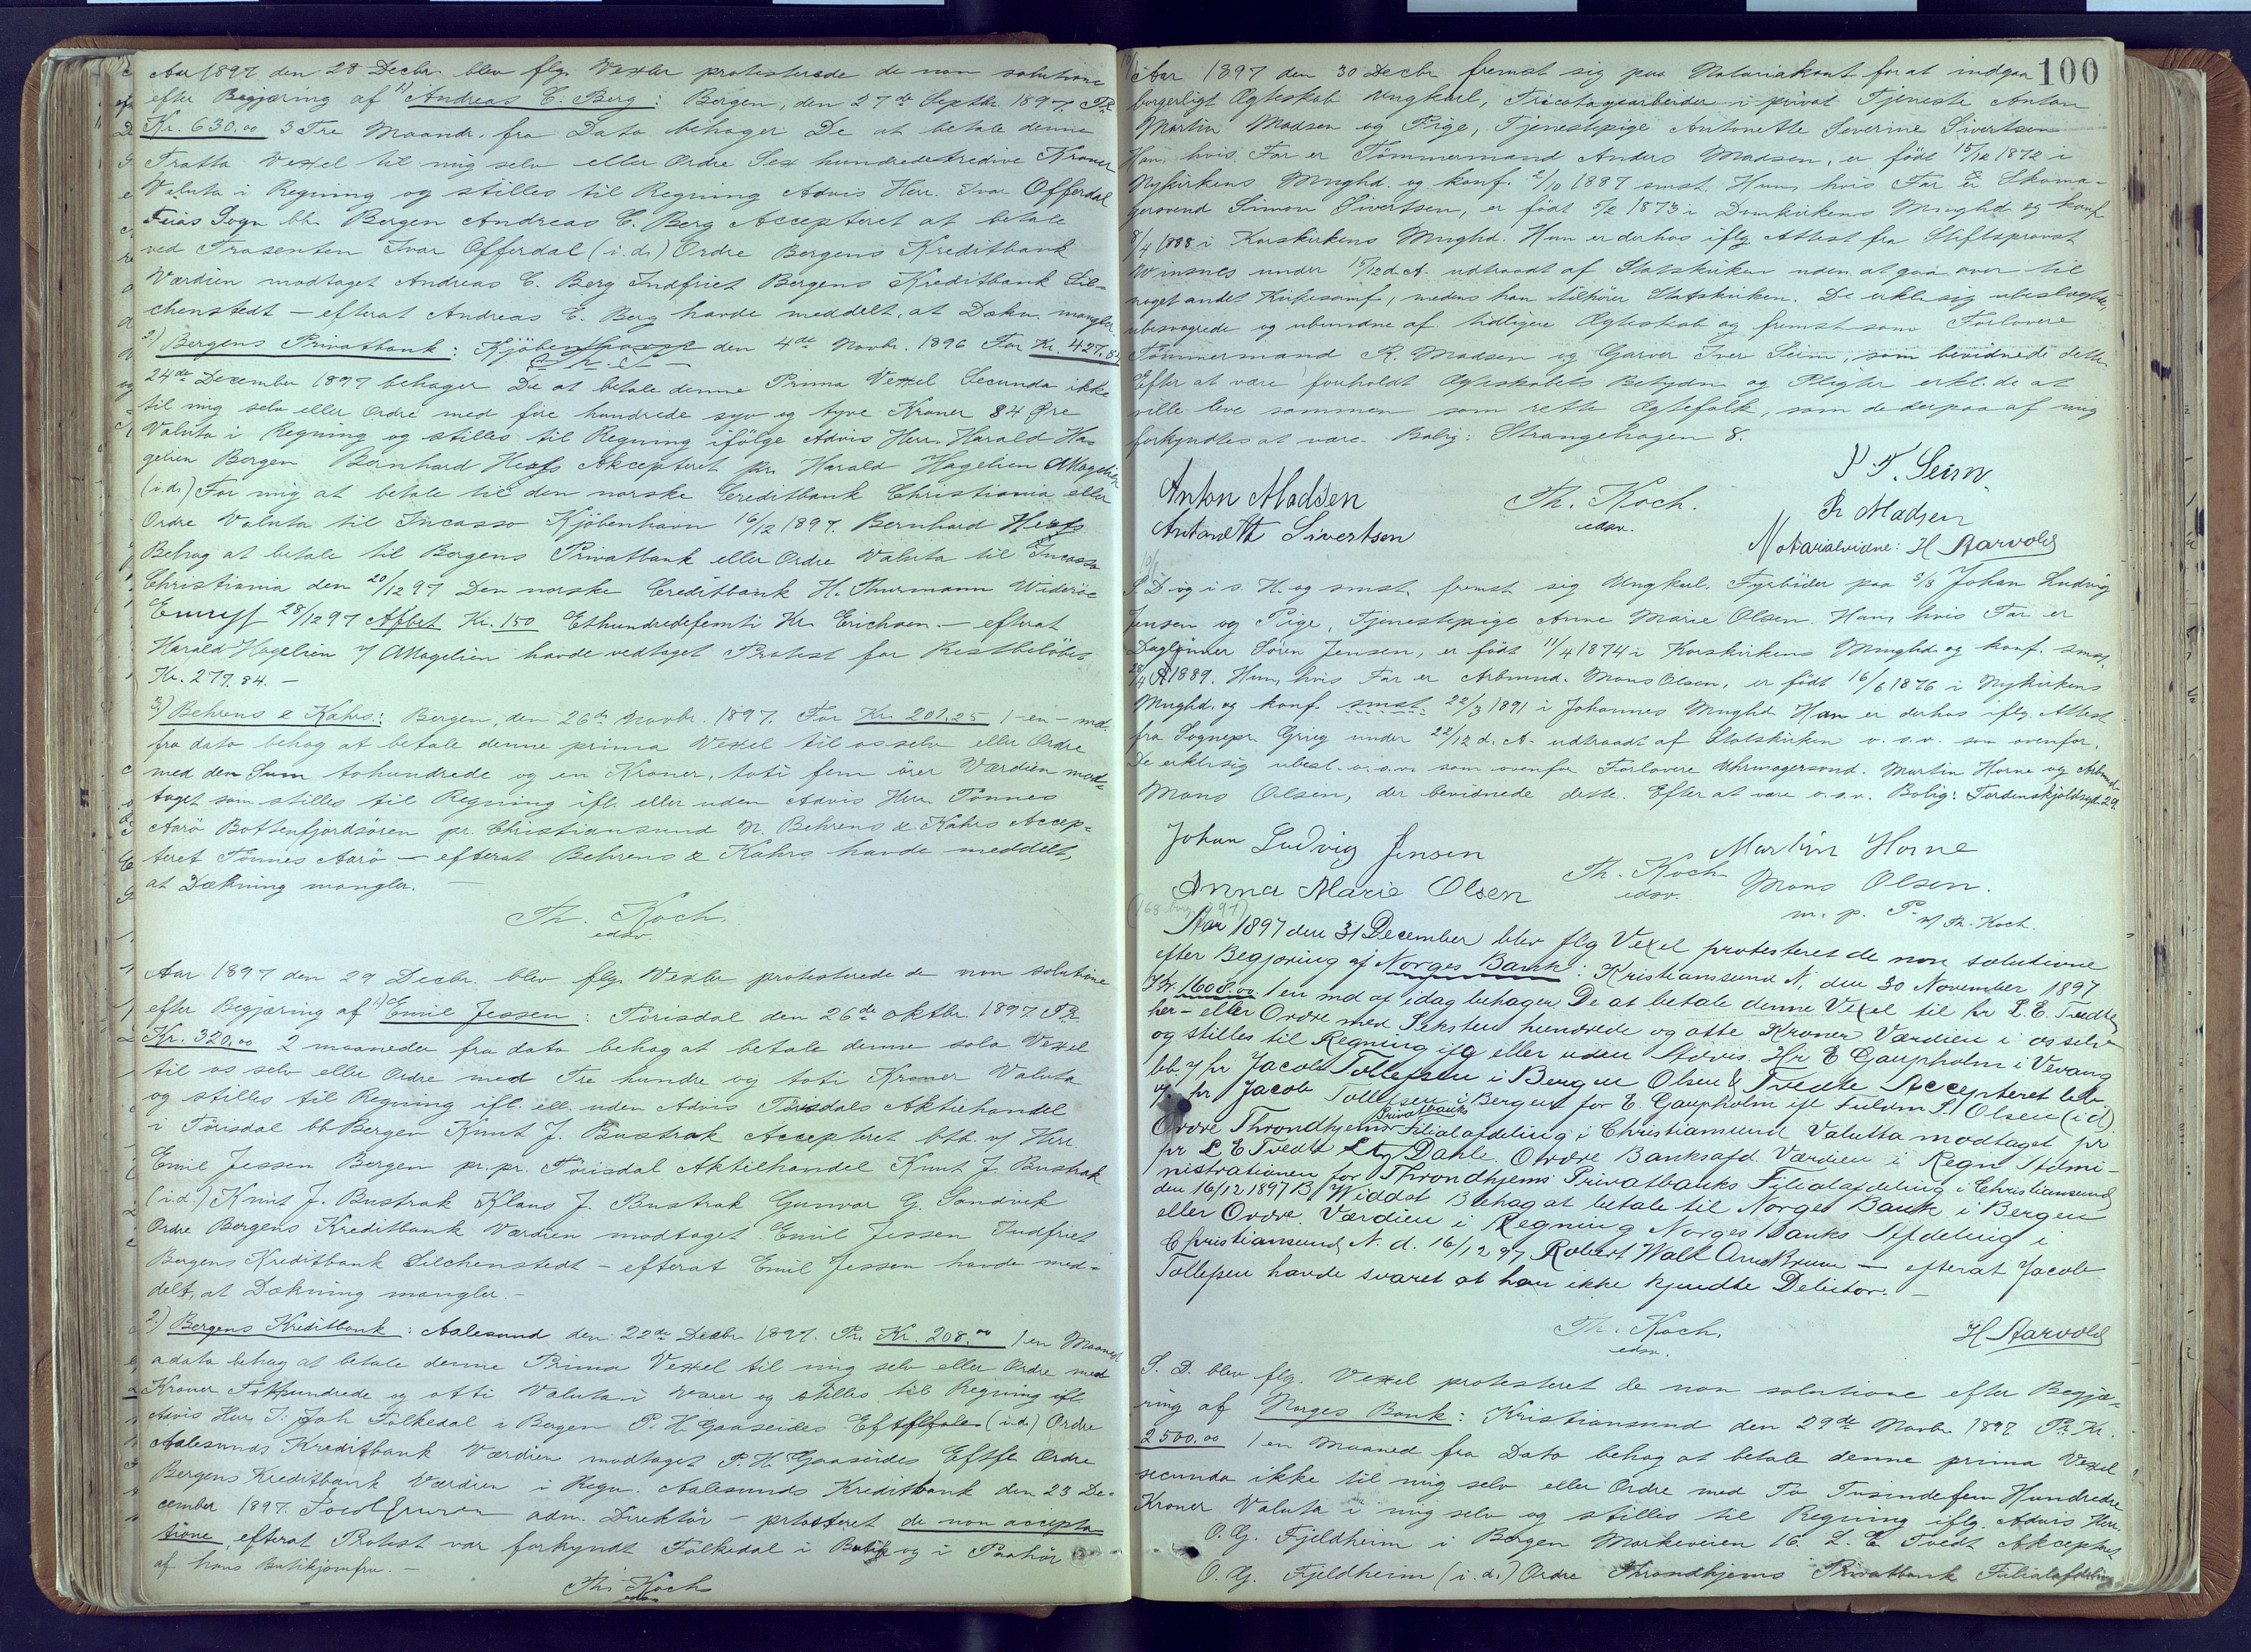 Aar 1897 den 28 Decbr. blev flg. Vexler protesterede de non solutione
efter Begjæring af 1) Andreas C. Berg: Bergen, den 27de Septbr 1897. Pr.
Kr. 630.00 3 Tre Maandr. fra Dato behager De at betale denne
Tratta Vexel til mig selv eller Ordre Sex hundredetredive Kroner
Valuta i Regning og stilles til Regning Advis Herr. Ivar Offerdal
Feios Sogn bb. Bergen Andreas C. Berg Accepteret at betale
ved Trasenten Ivar Offerdal (i.d.) Ordre Bergens Kreditbank
Værdien modtaget Andreas C. Berg Indfriet Bergens Kreditbank Lil-
chenstedt – efterat Andreas C. Berg havde meddelt, at Dækn. mangler
2) Bergens Privatbank: Kjöbenhavn den 4de Novbr. 1896 For Kr. 427.84
24de December 1897 behager De at betale denne Prima Vexel Secunda ikke
til mig selv eller Ordre med fire hundrede syv og tyve Kroner 84 Øre
Valuta i Regning og stilles til Regning ifölge Advis Herr. Harald Ha-
gelien Bergen Bernhard Akcepteret pr. Harald Hagelien AHagelien
(i.d.) For mig at betale til den norske Creditbank Christiania eller
Ordre Valuta til Incasso Kjöbenhavn 16/12 1897. Bernhard
Behag at betale til Bergens Privatbank eller Ordre Valuta til Incasso
Christiania den 20/12 97 Den norske Creditbank H. Thurmann Wideröe
28/12 97 Afbet. Kr. 150 Ethundredefemti Kr. Erichsen – efterat
Harald Hagelien v/ AHagelien havde vedtaget Protest for Restbelöbet
Kr. 277.84. –
3) Behrens & Kahrs: Bergen, den 26de Novbr. 1897. For Kr 201.25 1 – en – md.
fra dato behag at betale denne prima Vexel til os selv eller Ordre
med den Sum tohundrede og en Kroner, toti fem örer Værdien mod-
taget som stilles til Regning ifl. eller uden Advis Herr. Tönnes
Aarö Bottenfjordsören pr. Christiansund N. Behrens & Kahrs Accep-
teret Tönnes Aarö – efterat Behrens & Kahrs havde meddelt,
at Dækning mangler. –
Th. Koch.
edsv.
Aar 1897 den 29 Decbr. blev flg. Vexler protesterede de non solutione
efter Begjæring af 1) Emil Jessen: Törisdal den 26de oktbr. 1897 Pr.
Kr. 320.00 2 maaneder fra dato behag at betale denne sola Vexel
til os selv eller Ordre med Tre hundre og toti Kroner Valuta
og stilles til Regning ifl. ell. uden Advis Törisdals Aktiehandel
i Törisdal bb Bergen Knut J. Bustrak Accepteret btb. v/ Herr
Emil Jessen Bergen pr. pr. Törisdal Aktiehandel Knut J. Bustrak
(i.d.) Knut J. Bustrak Klaus J. Bustrak Gunvor G. Sandvik
Ordre Bergens Kreditbank Værdien modtaget Emil Jessen Indfriet
Bergens Kreditbank Lilchenstedt – efterat Emil Jessen havde med-
delt, at Dækning mangler. –
2.) Bergens Kreditbank: Aalesund den 22de Decbr 1897. Pr. Kr. 208.00 1 en Maaned
a dato behag at betale denne Prima Vexel til mig selv eller Ordre med
Kroner Tohundrede og otti Valuta i Varer og stilles til Regning ifl.
Advis Herr J. Joh Falkedal i Bergen P. H. Gaaseides Eftf (i.d.) Ordre
Aalesunds Kreditbank Værdien modtaget P. H. Gaaseides Eftfl. Ordre
Bergens Kreditbank Værdien i Regn. Aalesunds Kreditbank den 23 De-
cember 1897. adm. Direktör – protesteret de non accepta-
tione, efterat Protest var forkyndt Falkedal i Butik og i Paahör
af hans Butikjomfru. –
Th. Koch
edsv.
100
Aar 1897 den 30 Decbr fremst sig paa Notariakont. for at indgaa
borgerligt Ægteskab Ungkarl, Tricotagearbeider i privat Tjeneste Anton
Martin Madsen og Pige, Tjenestepige Antonette Severine Sivertsen
Han, hvis Far er Tömmermand Anders Madsen, er födt 15/12 1872 i
Nykirkens Mnghd. og konf. 2/10 1887 smst. Hun, hvis Far er Skoma-
gersvend Simon Sivertsen, er födt 5/2 1873 i Domkirkens Mnghd. og konf
8/4 1888 i Korskirkens Mnghd. Hun er derhos iflg. Attest fra Stiftsprovst
Winsnes under 15/12 d. A. udtraadt af Statskirken uden at gaa over til
noget andet Kirkesamf., medens han tilhörer Statskirken. De erkl. sig ubeslægtede,
ubesvogrede og ubundne af tidligere Ægteskab og fremst som Forlovere
Tömmermand R. Madsen og Garver Iver Seim, som bevidnede dette.
Efter at være foreholdt Ægteskabets Betydn. og Pligter erkl. de at
ville leve sammen som rette Ægtefolk, som de derpaa af mig
forkyndtes at være. Bolig: Strangehagen 8.
Anton Madsen
Antonette Sivertsen
Th. Koch.
edsv.
I T. Seim
R Madsen
Notarialvidne: H Aarvold
S. D. og i s. H. og smst. fremst sig Ungkarl, Fyrböder paa S/S Johan Ludvig
Jensen og Pige, Tjenestepige Anne Marie Olsen. Han, hvis Far er
Daglönner Sören Jensen, er födt 11/4 1874 i Korskirkens Mnghd. og konf. smst.
28/4 1889. Hun, hvis Far er Arbmnd. Mons Olsen, er födt 16/6 1876 i Nykirkens
Mnghd. og konf. smst 22/3 1891 i Johannes Mnghd Han er derhos iflg. Attest
fra Sognepr. Grieg under 22/12 d. A. udtraadt af Statskirken o. s. v. som ovenfor.
De erkl. sig ubesl. o. s. v. som ovenfor Forlovere Uhrmagersvnd. Martin Horne og Arbmd.
Mons Olsen, der bevidnede dette. Efter at være o. s. v. Bolig: Tordenskjoldsgd. 29.
Johan Ludvig Jensen
Anna Marie Olsen
Th. Koch
edsv.
Martin Horne
Mons Olsen.
m. p. P. v/ Th. Koch.
Aar 1897 den 31 December blev flg Vexel protesteret de non solutione
efter Begjæring af Norges Bank: Kristianssund N, den 30 November 1897
Kr. 1608.00 1 en md af idag behager De at betale denne Vexel til hr L. E. Tvedte
her – eller Ordre med Seksten hundrede og otte Kroner Værdien i os selv
og stilles til Regning iflg eller uden Advis. Hr E Gaupholm i Vevang
bb. v/ hr Jacob Tollefsen i Bergen Olsen & Tvedte Accepteret bb
v/ hr Jacob Tollefsen i Bergen for E. Gaupholm ifl Fuldm S. Olsen (i d)
Ordre Throndhjems Privatbanks Filialafdeling i Christiansund Valutta modtaget pr
pr L E Tvedt Dahle. Ordre Banksafd. Værdien i Regn Admi-
nistrationen for Throndhjems Privatbanks Filialafdeling i Christiansund
den 16/12 1897 B Widdst Behag at betale til Norges Bank i Bergen
eller Ordre. Værdien i Regning Norges Banks Afdeling i
Christiansund N. d. 16/12 97 Robert Walt Bruun – efterat Jacob
Tollefsen havde svaret at han ikke kjendte Debitor. –
Th. Koch.
edsv.
H Aarvold
S. D. blev flg. Vexel protesteret de non solutione efter Begjæ-
ring af Norges Bank: Kristiansund den 29de Novbr 1897 Pr. Kr.
2500.00 1 en Maaned fra Dato behag at betale denne prima Vexel
secunda ikke til mig selv eller Ordre med To Tusinde fem Hundrede
Kroner Valuta i mig selv og stilles til Regning iflg. Advis Herr.
O. G. Fjeldheim i Bergen Markeveien 16. L. E. Tvedt Akcepteret
O. G. Fjeldheim (i. d.) Ordre Throndhjems Privatbank Filialafdeling